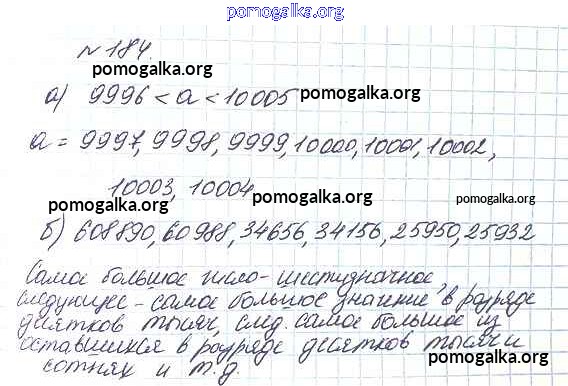 pomogalka.org
№184.
pomogalka.org
pomogalka.org
а) 9996 < a < 10005 pomogalka.org
a = 9997, 9998, 9999, 10000, 10001, 10002,
10003, 10004
pomogalka.org
pomogalka.org
pomogalka.org
б) 608890, 60988, 34656, 34156, 25950, 25932
Самое большое число - шестизначное,
следующее - самое большое значение в разряде
десятков тысяч, след. самое большое из
оставшихся в разряде десятков тысяч и
сотнях и т.д.
pomogalka.org